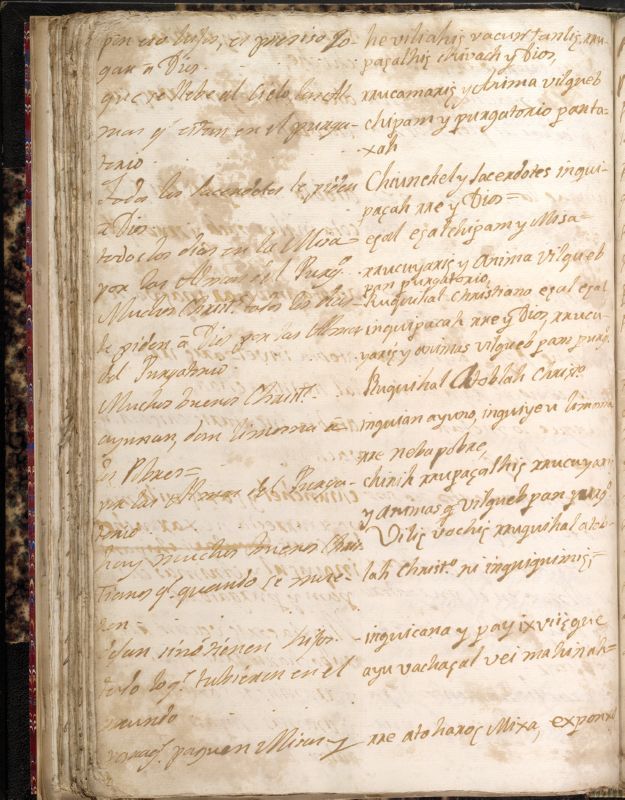 por eso hijos, es preciso Ro-
gar a Dios
que se llebe al Cielo las Al-
mas q.e estan en el purga-
torio
todos los Sacerdotes le piden
a Dios
todos los dias en la Misa=
por las Almas del Purg.o
Muchos Christ.s todos los dias
le piden a Dios por las Almas
del Purgatorio
Muchos buenos Christ.s
ayunan, dan limosna a-
los Pobres=
por las Almas del Purga-
torio
hay muchos buenos Chris-
tianos q.e quando se mue-
ren
si no tienen hijos
todo lo q.e tubieren en el
mundo
paguen Misas y
he viliahis vacun
paçalhis chivach y Dios,
xrucamaris y Anima vilqueb
chipam y purgatorio panta-
xah
Chiunchel y Sacerdotes inqui-
paçah rre y Dios=
eçal eçatchipam y Misa=
xrucuyaris y Anima vilqueb
pan purgatorio,
Ruquihal Christiano eçal eçal
inquipacah rre y Dios, xrucu-
yaris y animas vilqueb pam purg.o
Ruquihal Atoblah Christ.o
inquian ayuno, inquiyeu limosna
rre neba pobre,
chirih rrupaçalhis xrucuyaris
y animas q vilqueb pan purg.o
Vilis vachis rruquihal atob-
lah Christ.o ni inquiquimis,
inquicana y pay ixviisque
ayu vachaçal vei mahinah=
rre atoharos Mixa,